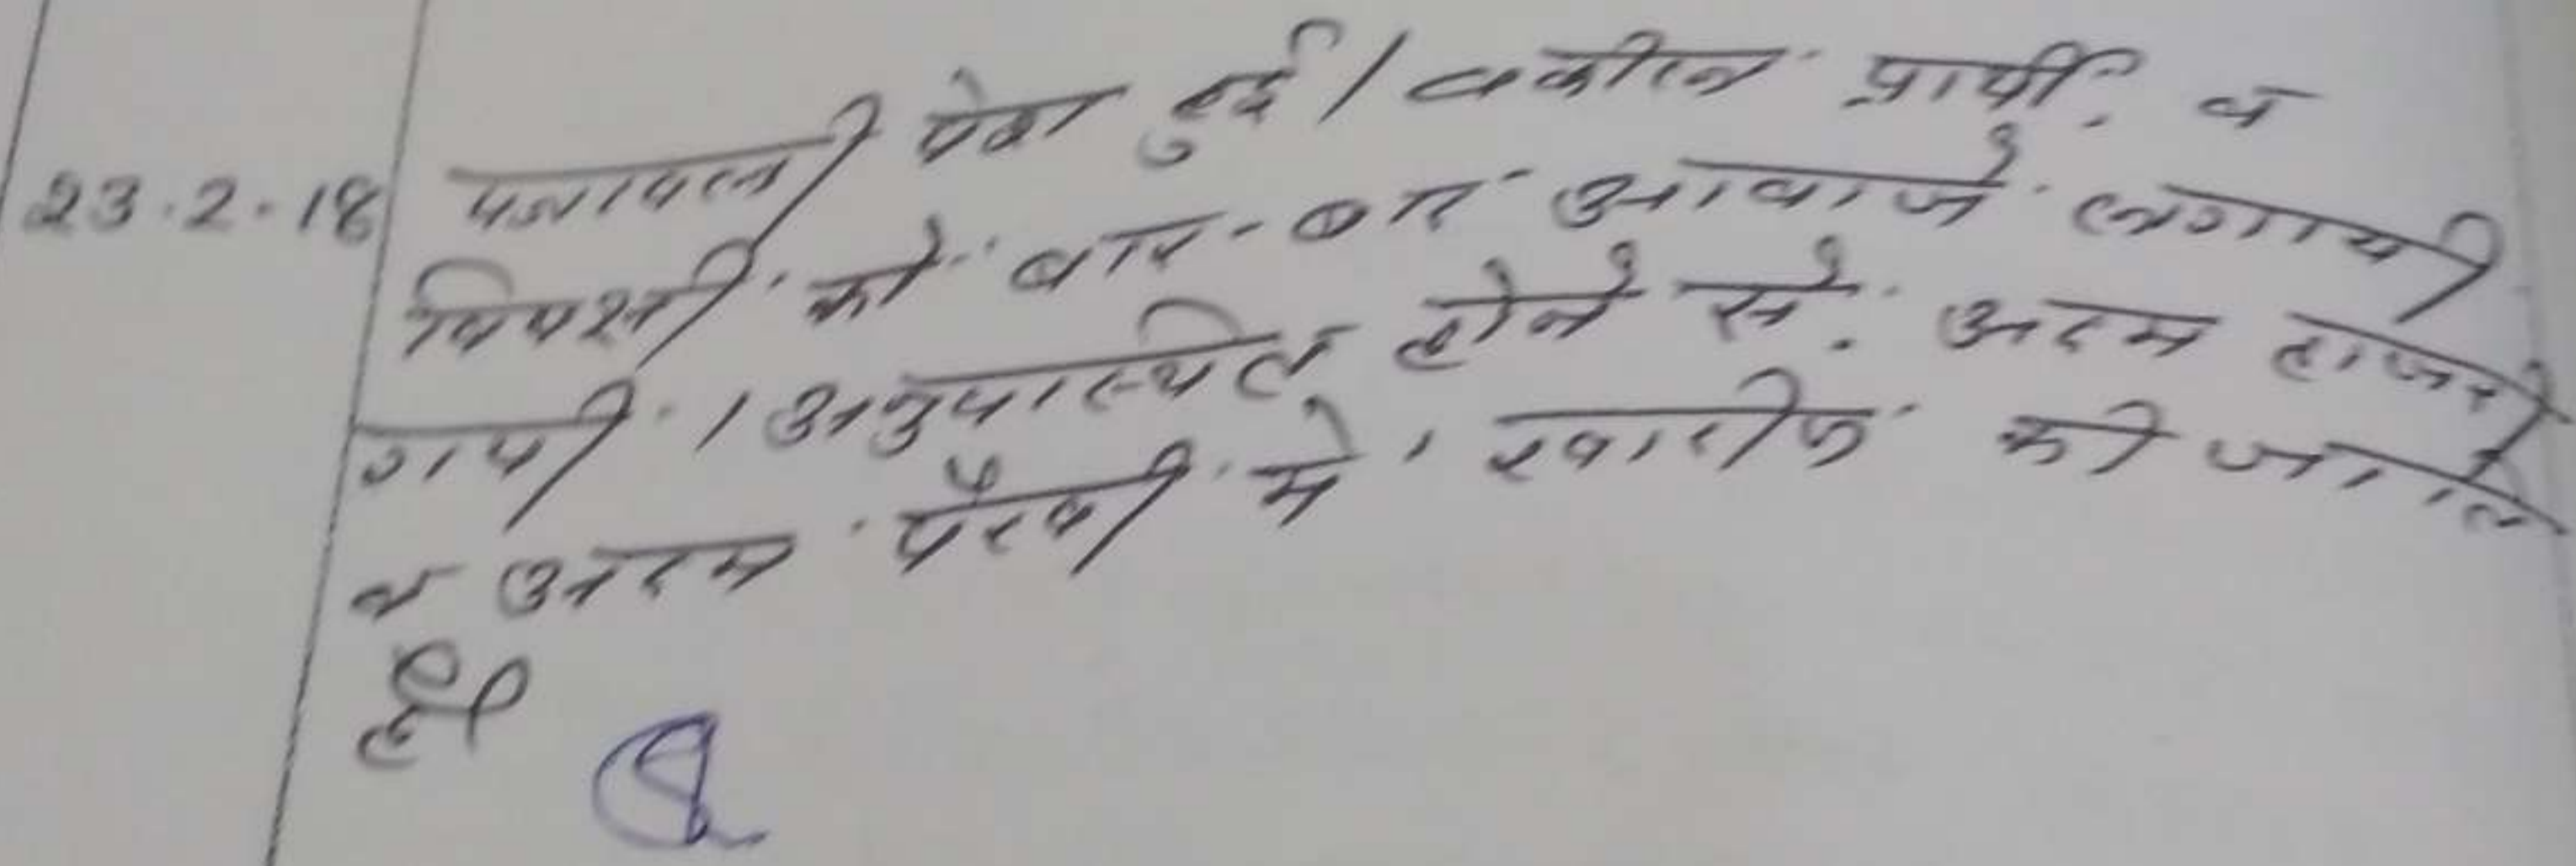 23.2.18 पत्रावली पेश हुई। वकील प्रार्थी व
विपक्षी को बार-बार आवाजे लगायी
गयी। अनुपस्थित होने से अदम हाजरी
व अदम पैरवी मे खारीज की जाती
है।